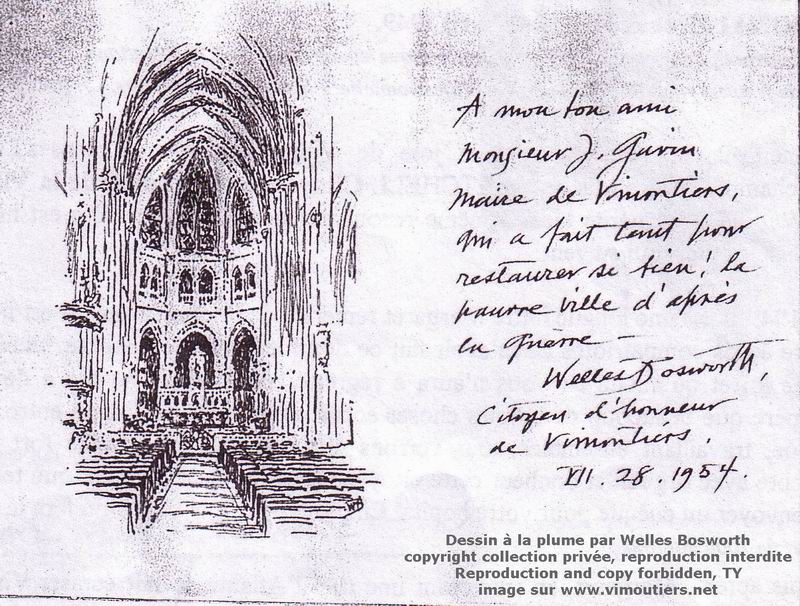 A mon bon ami
Monsieur J. Gavin
Maire de Vimoutiers,
qui a fait tant pour
restaurer si bien! la
pauvre ville d'après
la guerre —
Welles Bosworth,
Citoyen d'honneur
de Vimoutiers.
VII 28.1954.
Dessin à la plume par Welles Bosworth
copyright collection privée, reproduction interdite
Reproduction and copy forbidden, TY
image sur www.vimoutiers.net